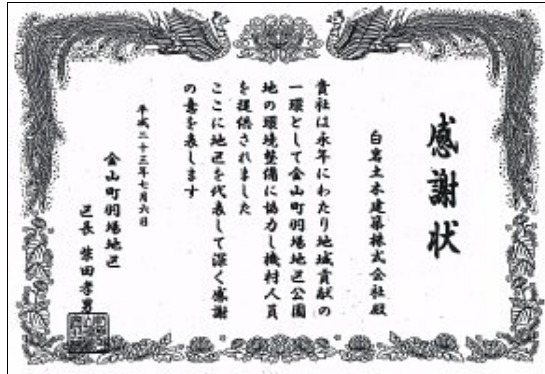 感謝状
白岩土木建築株式会社殿
貴社は永年にわたり地域貢献の
一環として金山町羽場地区公園
地の環境整備に協力し機材人員
を提供されました
ここに地区を代表して深く感謝
の意を表します
平成二十三年七月六日
金山町羽場地区
区長 柴田孝男